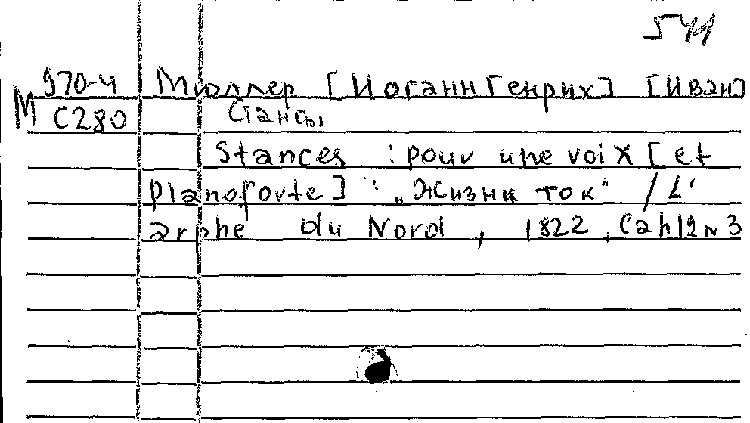 541
970-4 Мюллер [Иоганн Генрих] [Иван]
М С280 Стансы
Stances : pour une voix [et
pianoforte] : „Жизни ток“ / L'
arphe du Nord, 1822, Cah12 N 3